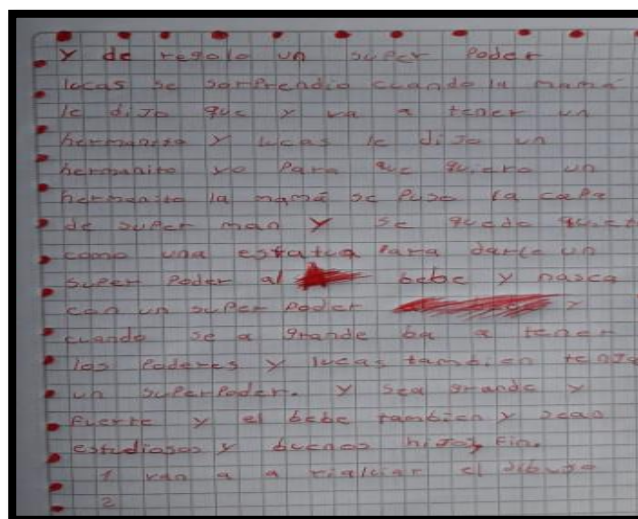 Y de regalo un super Poder
lucas se sorprendio cuando la mamá
le dijo que y va a tener un
hermanito Y lucas le dijo un
hermanito yo Para que quiero un
hermanito la mamá se Puso la capa
de super man Y se quedo quiet
como una estatua Para darle un
super Poder al bebe y nasca
con un super Poder y
cuando se a grande ba a tener
los Poderes Y lucas tambien tenja
un superPoder. Y sea grande y
Fuerte y el bebe tambien y sean
estudiosos y buenos hijos Fin.
1 van a a el dibujo
2